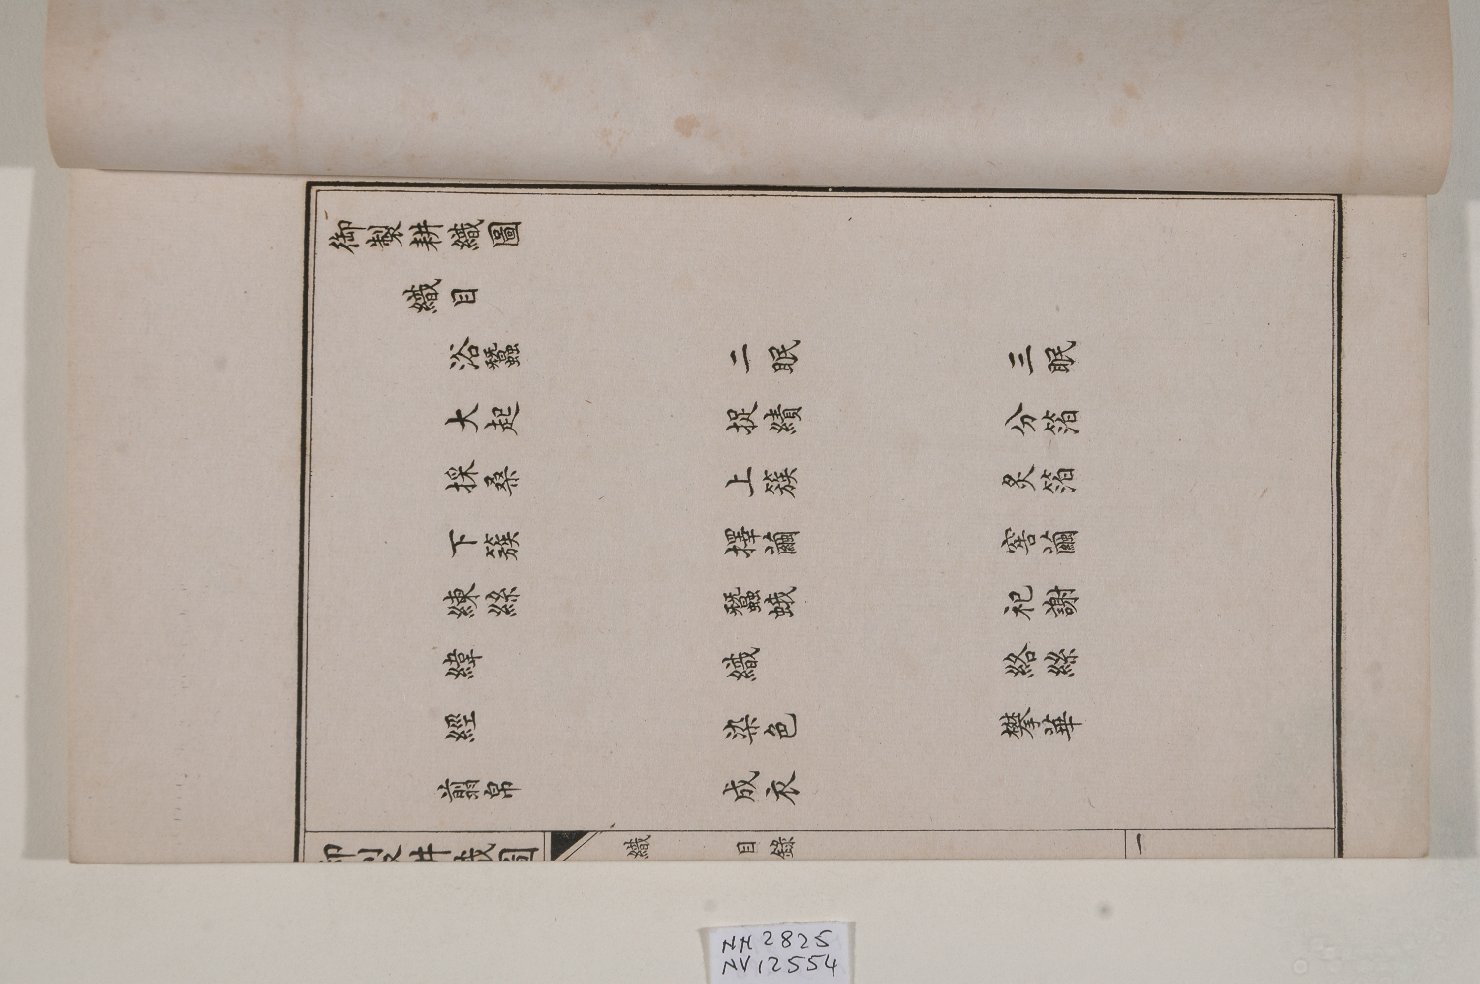 御製耕織圖
織目
浴蠶 二眠 三眠
大起 捉績 分箔
採桑 上簇 炙箔
下簇 擇繭 窖繭
練絲 蠶蛾 祀謝
緯 織 絡絲
經 染色 攀華
剪帛 成衣
御製耕織圖 織 目錄 一
NH 2825
NV 12554